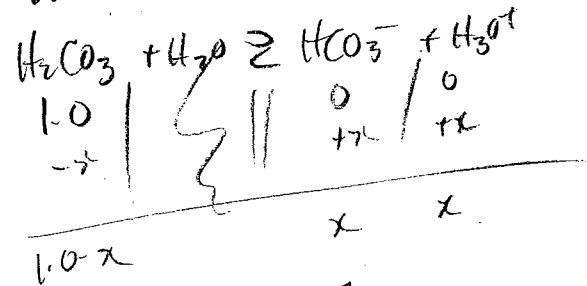 H₂CO₃ + H₂O ⇌ HCO₃⁻ + H₃O⁺
1.0 0 0
-x +x +x
1.0-x x x